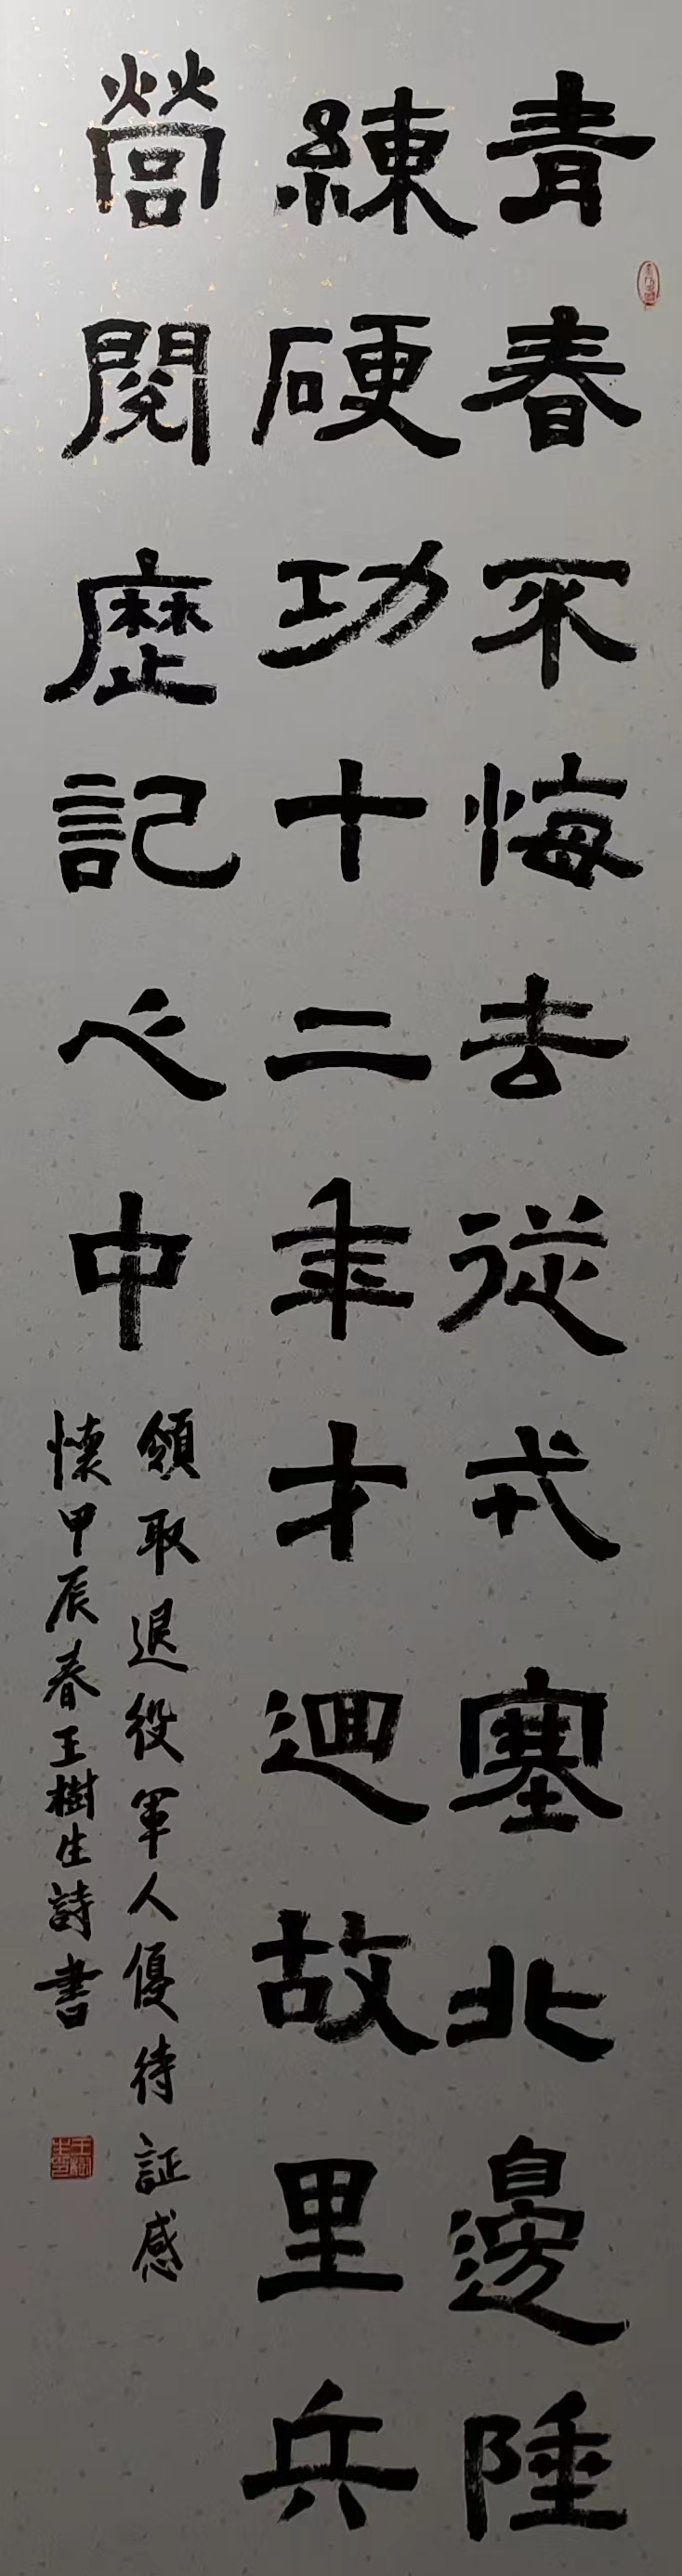 青春不悔去從戎塞北邊陲
練硬功十二年才迴故里兵
營閱歷記心中
領取退役軍人優待証感
懷甲辰春王樹生詩書